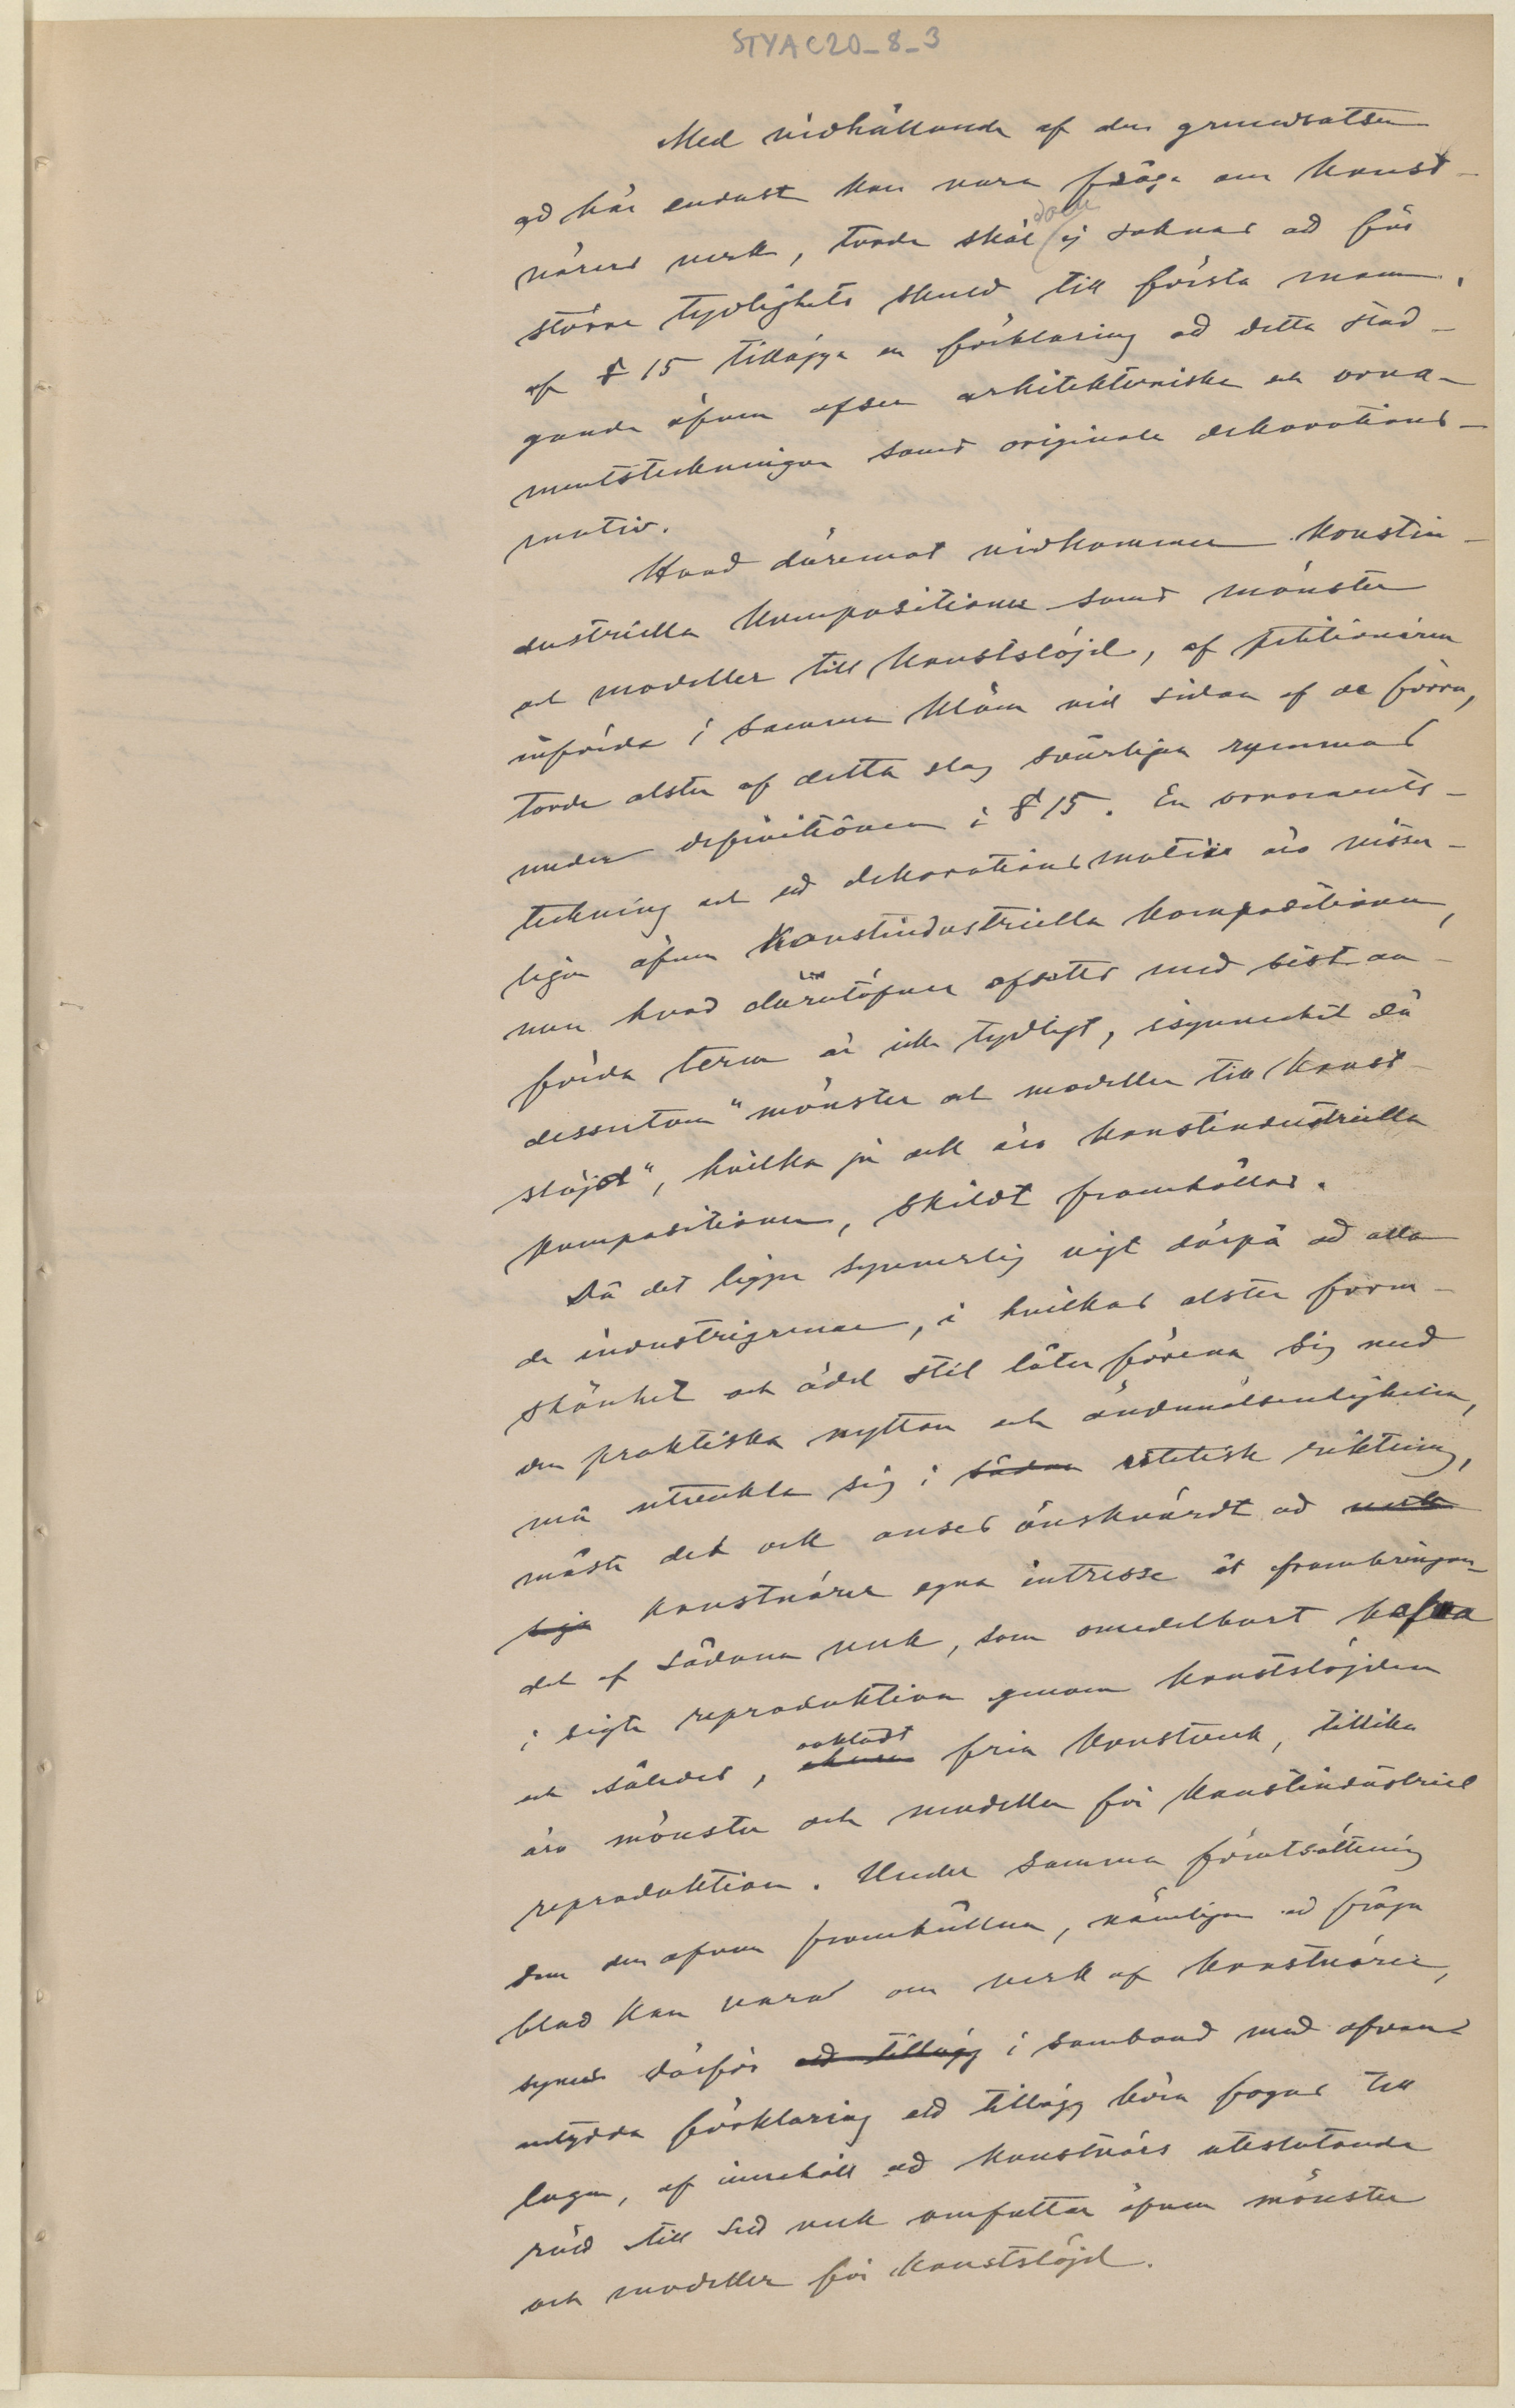 STYAC20_8_3
Med vidhållande af den grundsatsen
att här endast kan vara fråga om konst-
närers verk, torde skäl dock ej saknas att för
större tydlighets skuld till första mom.
af § 15 tillägga en förklaring att detta stad-
gande äfven afser arkitektoniska och orna-
mentsteckningar samt originala dekorations-
motiv.
Hvad däremot vidkommer konstin-
dustriella kompositioner samt mönster
och modeller till konstslöjd, af petitionären
införda i samma kläm vid sidan af de förra,
torde alster af detta slag svårligen rymmas
under definitionen i § 15. En ornaments-
teckning och ett dekorationsmotiv äro visser-
ligen äfven konstindustriella kompositioner,
men hvad därutöfver afsetts med sist an-
förda term är icke tydligt, isynnerhet då
dessutom "mönster och modeller till konst-
slöjd", hvilka ju ock äro konstindustriella
kompositioner, skildt framhållas.
Då det ligger synnerlig vigt därpå att alla
de industrigrenar, i hvilkas alster form-
skönhet och ädel stil låter förena sig med
den praktiska nyttan och ändamålsenligheten,
må utveckla sig i sådan estetisk riktning,
måste det ock anses önskvärdt att verk
konstnärer egna intresse åt frambringan-
det af sådana verk, som omedelbart hafva
i sigte reproduktion genom konstslöjden
och således, oaktadt fria konstverk, tillika
äro mönster och modeller för konstindustriel
reproduktion. Under samma förutsättning
som den ofvan framhållna, nämligen att fråga
blott kan vara om verk af konstnärer,
synes därför ett tillägg i samband med ofvan
antydda förklaring ett tillägg böra fogas till
lagen, af innehåll att konstnärs uteslutande
rätt till sitt verk omfattar äfven mönster
och modeller för konstslöjd.